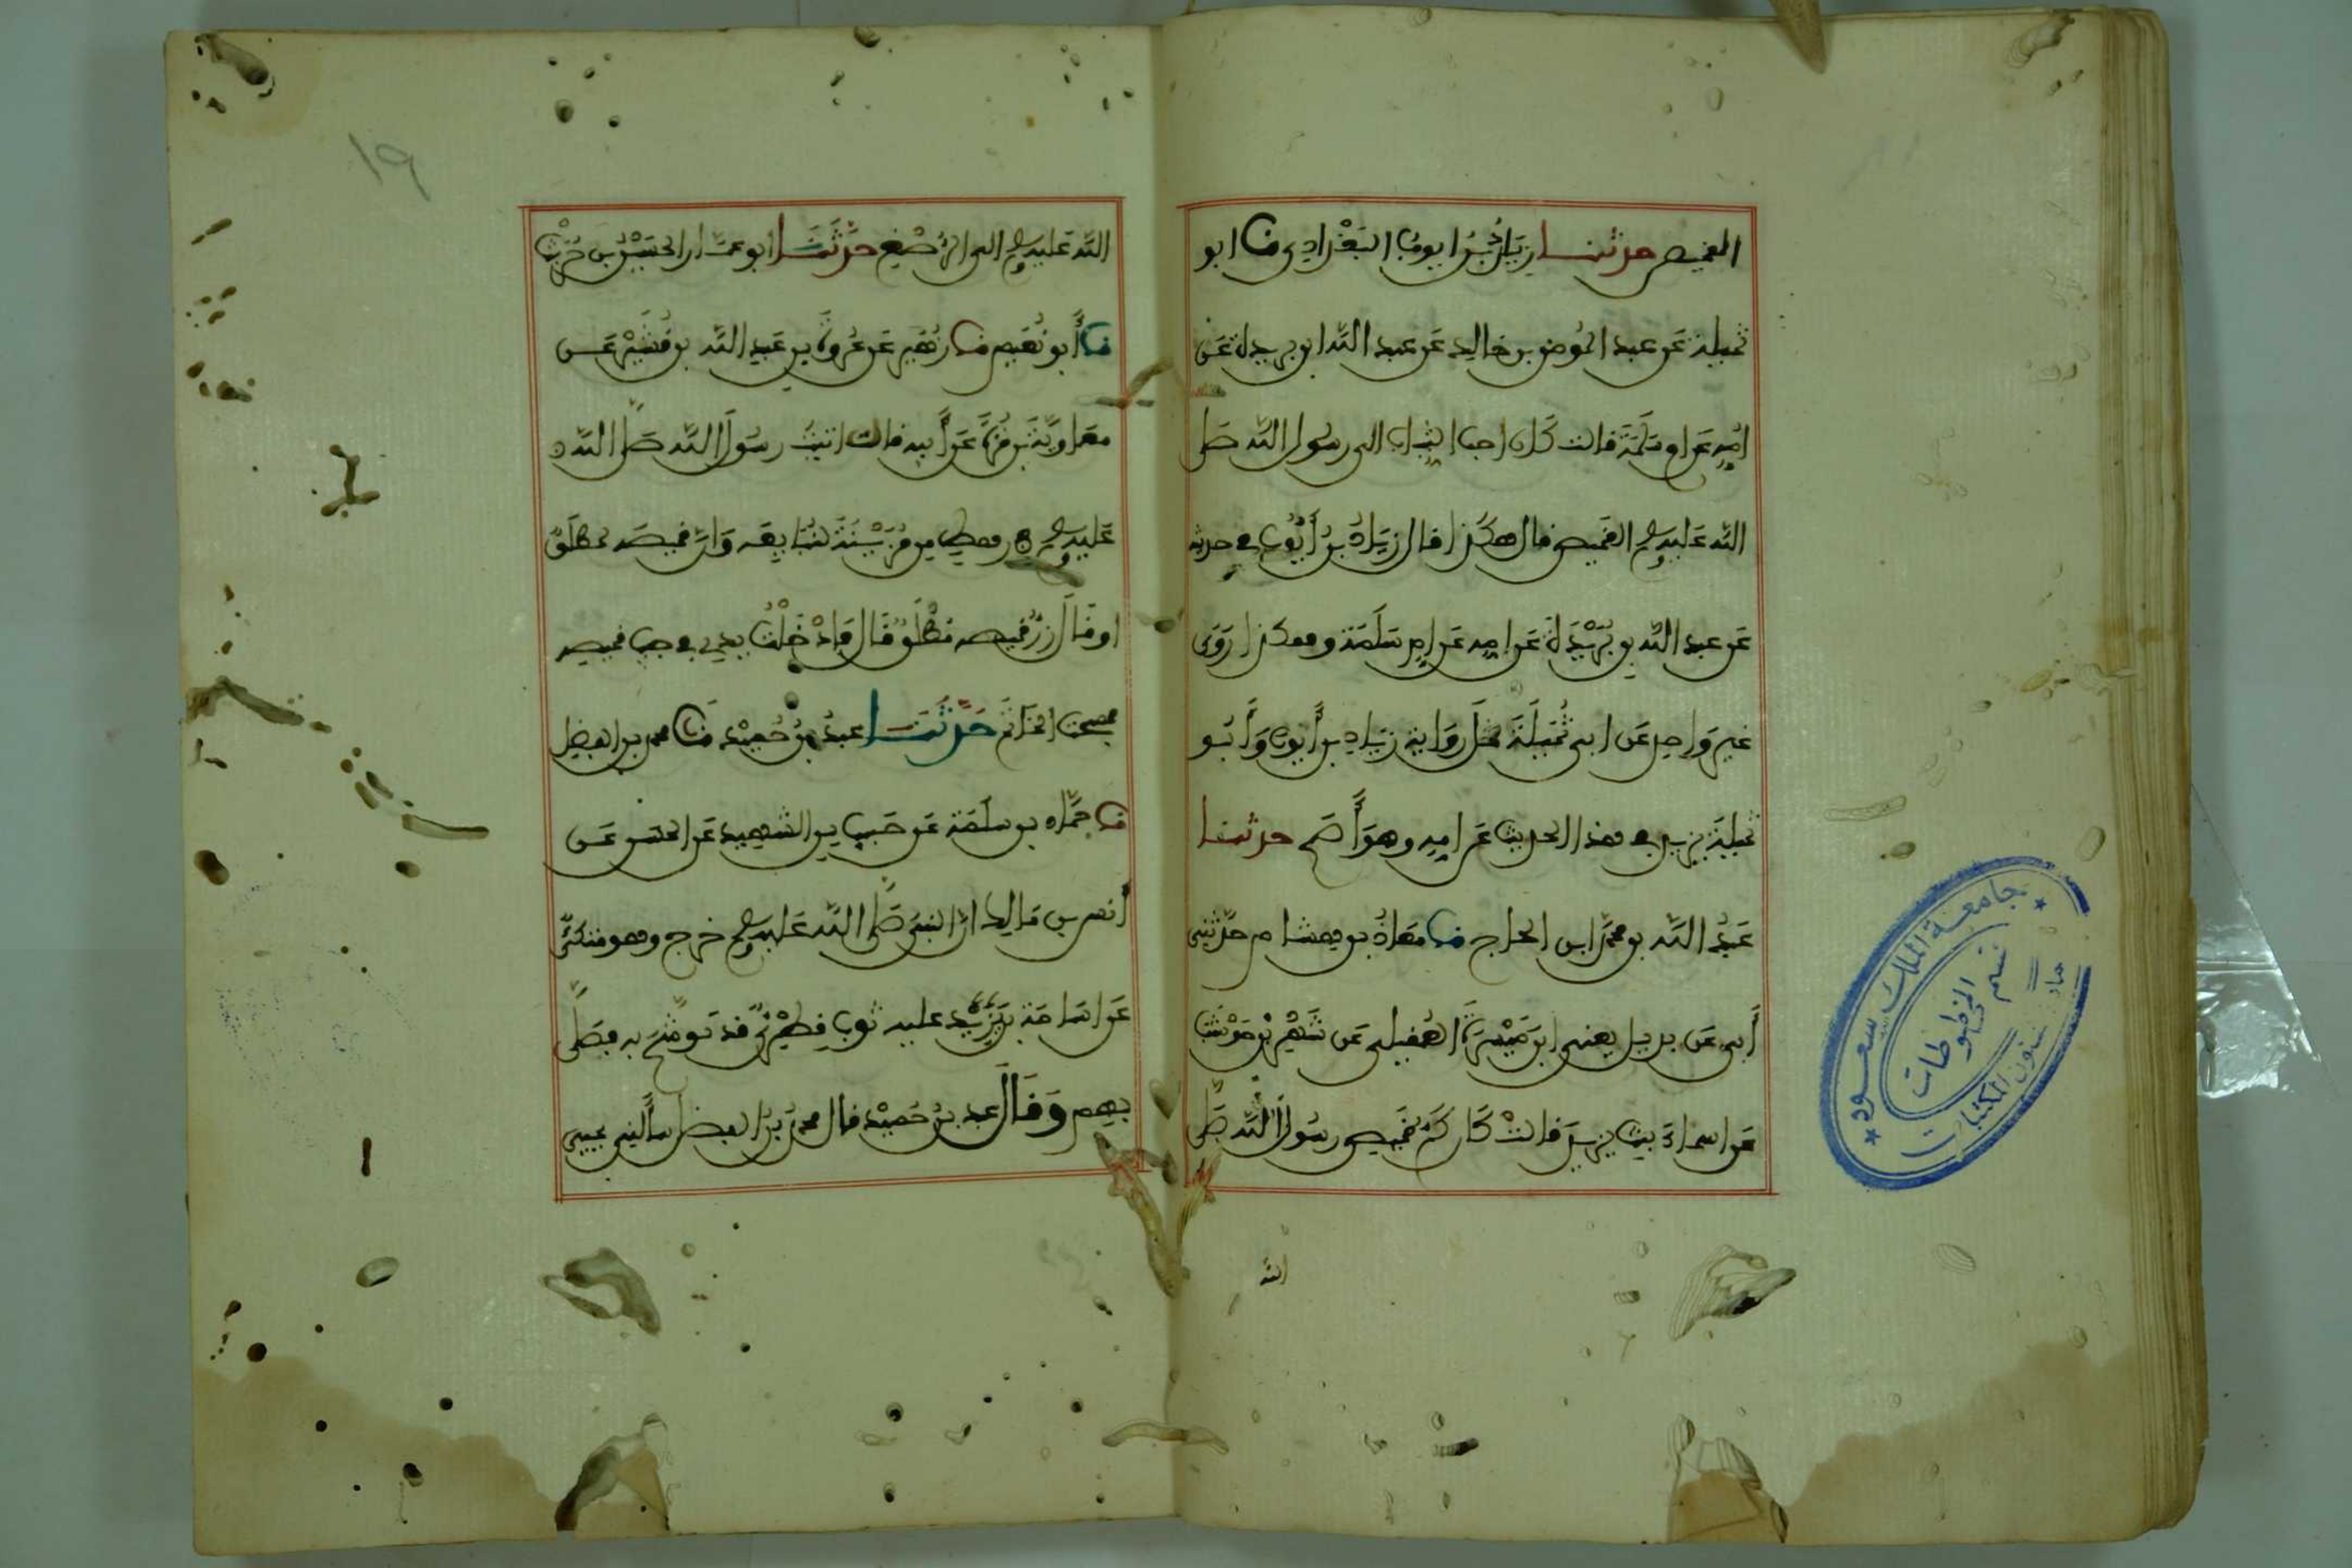 القميص حدثنا زياد بن ايوب البغدادي ثنا ابو
تميلة عن عبد المومن بن خالد عن عبد الله ابن بريدة عن
امه عن ام سلمة قالت كان احب الثياب الى رسول الله صلى
الله عليه وسلم القميص قال هكذا قال زياد بن أيوب في حديثه
عن عبد الله بن بريدة عن امه عن ام سلمة وهكذا روى
غير واحد عن ابي تميلة مثل رواية زياد بن أيوب وأبو
تميلة يزيد في هذا الحديث عن امه وهو أصح حدثنا
عبد الله بن محمد ابن الحجاج ثنا معاذ بن هشام حدثني
أبي عن بديل يعني ابن ميسرة العقيلي عن شهر بن حوشب
عن اسماء بنت يزيد قالت كان كم قميص رسول الله صلى
الله
١٩
الله عليه وسلم الى الرصغ حدثنا ابو عمار الحسين بن حريث
ثنا أبو نعيم ثنا زهير عن عروة بن عبد الله بن قشير عن
معاوية بن قرة عن أبيه قال اتيت رسول الله صلى الله
عليه وسلم في رهط من مزينة لنبايعه وان قميصه لمطلق
او قال زر قميصه مطلق قال فادخلت يدي في جيب قميصه
فمسست الخاتم حدثنا عبد بن حميد ثنا محمد بن الفضل
ثنا حماد بن سلمة عن حبيب بن الشهيد عن الحسن عن
أنس بن مالك ان النبي صلى الله عليه وسلم خرج وهو متكئ
على اسامة بن زيد عليه ثوب قطري قد توشح به فصلى
بهم وقال عبد بن حميد قال محمد بن الفضل سألني يحيى
جامعة الملك سعود
عمادة شئون المكتبات
قسم المخطوطات